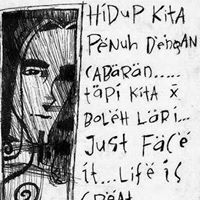 HiDUP KitA
PéNUH DéNGAN
CABARAN.....
tAPi KitA x̄
BOLéH LARi...
JUSt FACé
it... Lifé iS
GRéAt